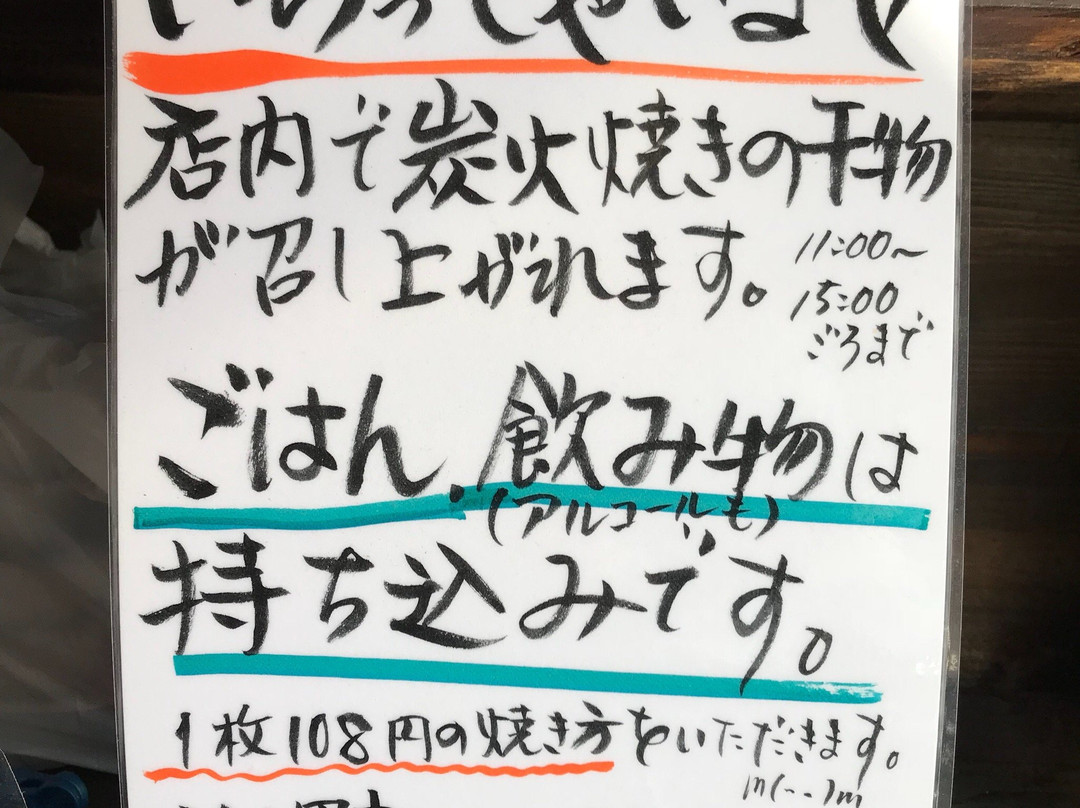 いらっしゃいませ
店内で炭火焼きの干物
が召し上がれます。
11:00〜
15:00
ごろまで
ごはん、飲み物は
(アルコールも)
持ち込みです。
1枚108円の焼き方をいただきます。
m(--)m